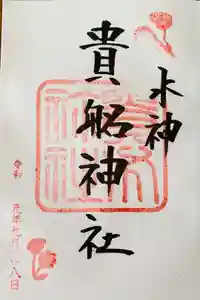 水神
貴船神社
令和
元年七月 八日